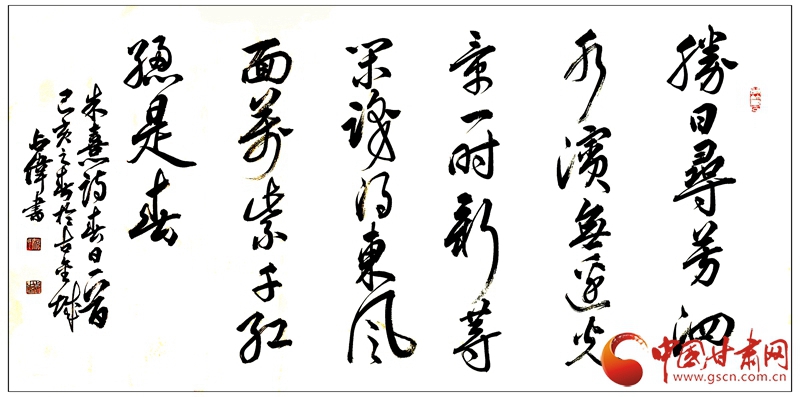 勝日尋芳泗
水濱無邊光
景一时新等
閑識得東風
面萬紫千紅
總是春
朱熹詩春日一首
己亥之春於古金城
占偉書
中国甘肃网
www.gscn.com.cn